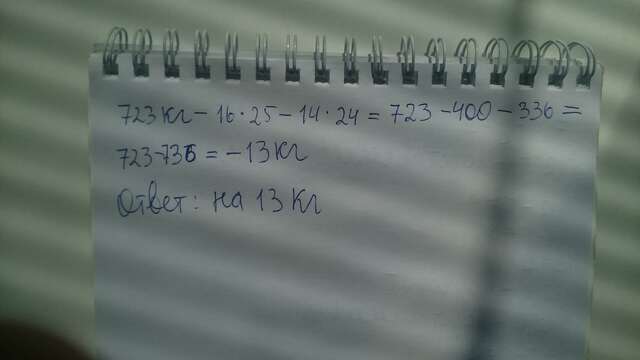 723кг - 16·25 - 14·24 = 723 - 400 - 336 =
723-736 = -13кг
Ответ: на 13кг